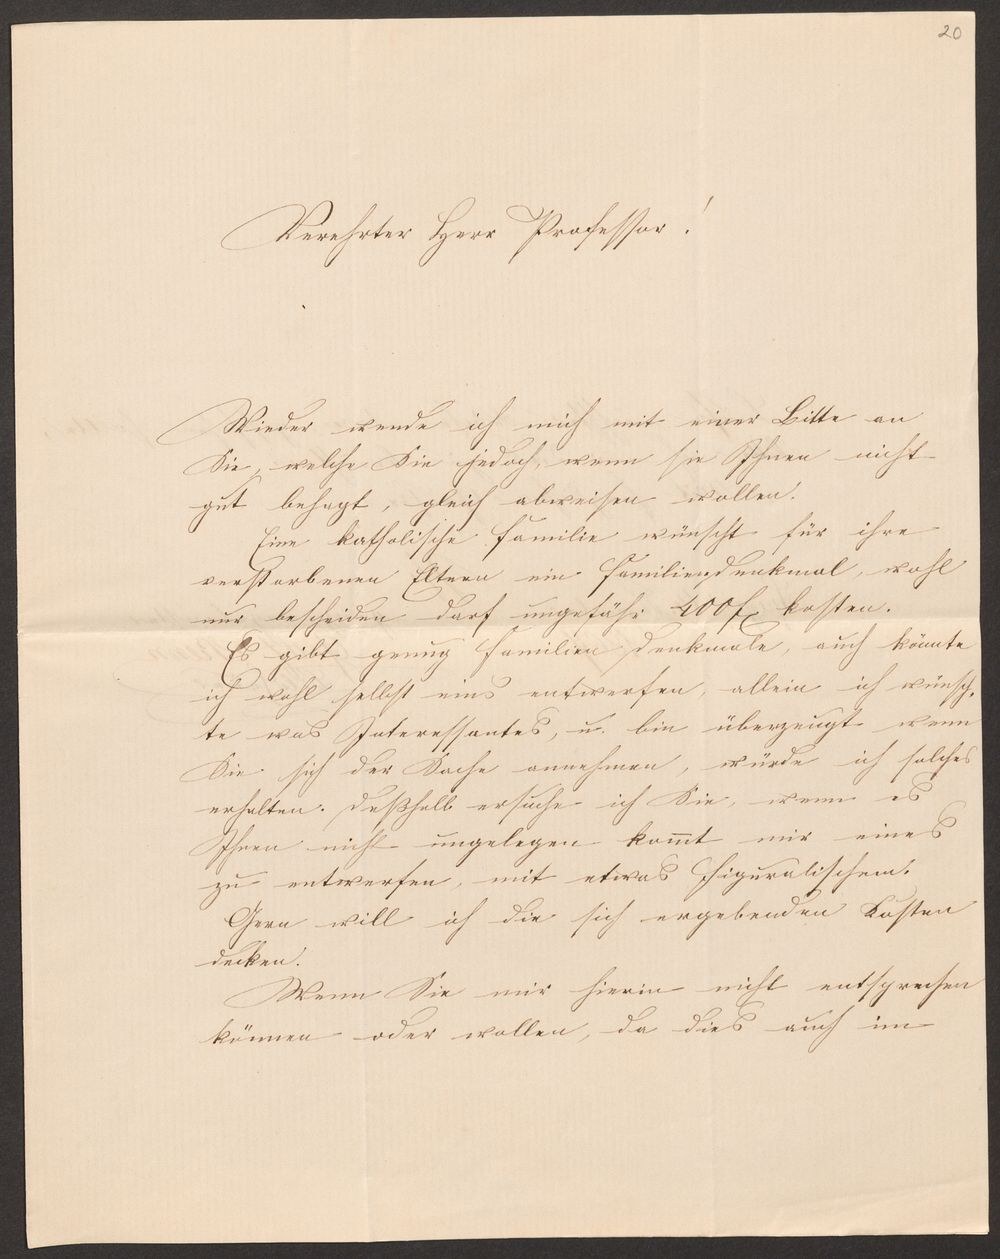 20
Verehrter Herr Professor!
Wieder wende ich mich mit einer Bitte an
Sie, welche Sie jedoch, wenn sie Ihnen nicht
gut behagt, gleich abweisen wollen.
Eine katholische Familie wünscht für ihre
verstorbenen Eltern ein Familiendenkmal, wohl
nur bescheiden darf ungefähr 400 f kosten.
Es gibt genug Familien Denkmale, auch könnte
ich wohl selbst eins entwerfen, allein ich wünsch,
te was Interessantes, u. bin überzeugt wenn
Sie sich der Sache annehmen, würde ich solches
erhalten. Deßhalb ersuche ich Sie, wenn es
Ihnen nicht ungelegen kom̄t mir eines
zu entwerfen, mit etwas Figuralischem.
Gern will ich die sich ergebenden Kosten
decken.
Wenn Sie mir hierin nicht entsprechen
können oder wollen, da dies auch im